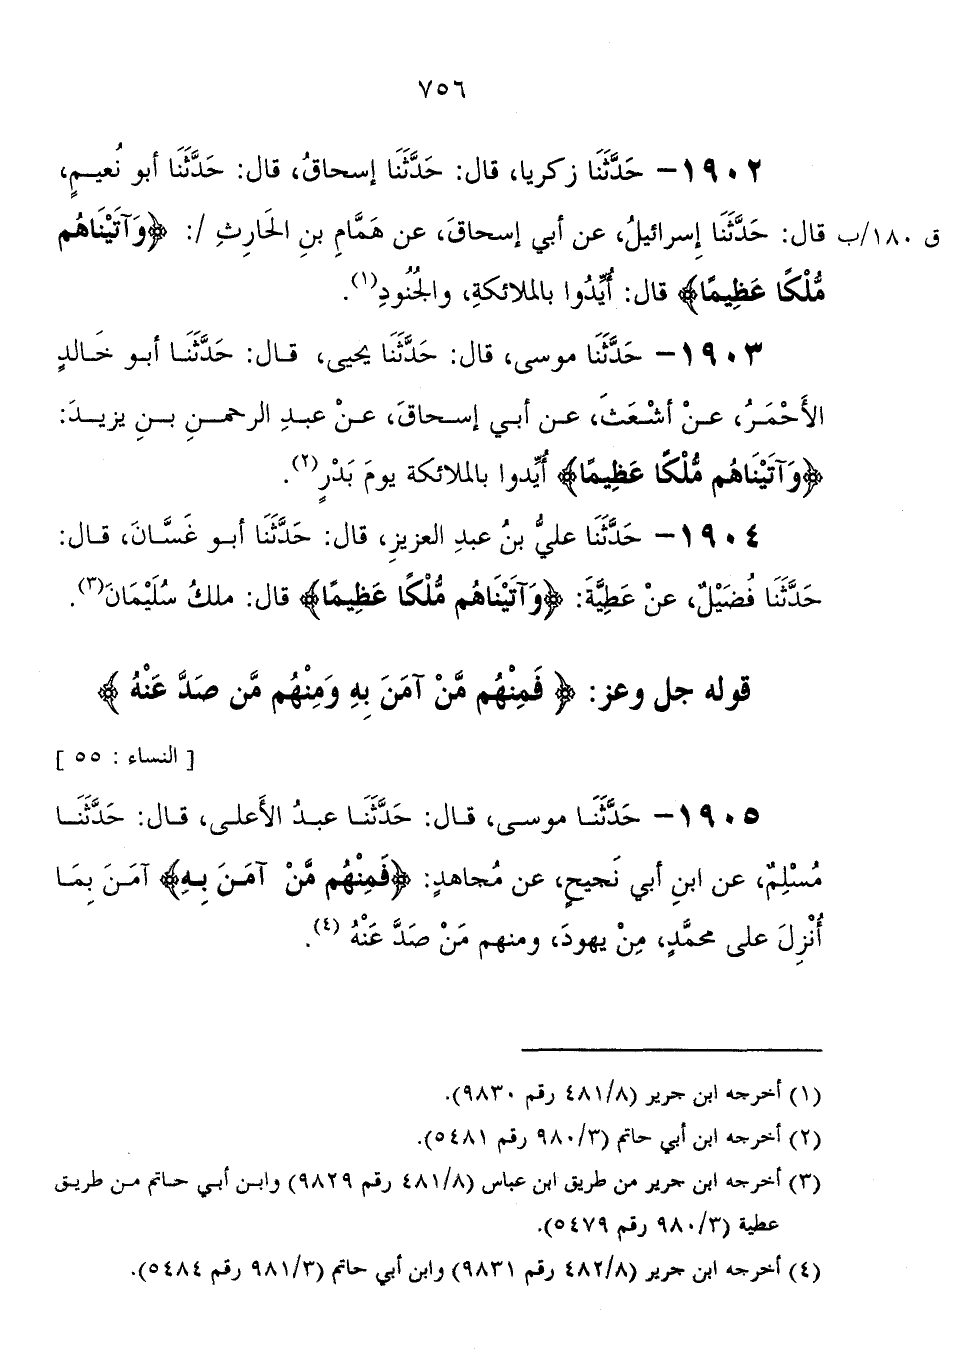 ٧٥٦
١٩٠٢– حَدَّثَنَا زكريا، قال: حَدَّثَنَا إسحاقُ، قال: حَدَّثَنَا أبو نُعيـمٍ،
ق ١٨٠/ب قال: حَدَّثَنَا إسرائيلُ، عن أبي إسحاقَ، عن هَمَّامِ بنِ الحَارِثِ /: ﴿وَآتَيْنَاهُم
مُّلْكًا عَظِيمًا﴾ قال: أُيِّدُوا بالملائكةِ، والجُنُودِ(١).
١٩٠٣– حَدَّثَنَا موسى، قال: حَدَّثَنَا يحيى، قـال: حَدَّثَنَـا أبـو خَـالدٍ
الأَحْمَـرُ، عـنْ أشْعَـثَ، عـن أبـي إسـحاقَ، عـنْ عبـدِ الرحمـنِ بـنِ يزيـدَ:
﴿وَآتَيْنَاهُم مُّلْكًا عَظِيمًا﴾ أُيِّدوا بالملائكة يومَ بَدْرٍ(٢).
١٩٠٤– حَدَّثَنَا عليُّ بنُ عبدِ العزيزِ، قال: حَدَّثَنَا أبـو غَسَّـانَ، قـال:
حَدَّثَنَا فُضَيْلٌ، عنْ عَطِيَّةَ: ﴿وَآتَيْنَاهُم مُّلْكًا عَظِيمًا﴾ قال: ملكُ سُلَيْمَانَ(٣).
قوله جل وعز: ﴿ فَمِنْهُم مَّنْ آمَنَ بِهِ وَمِنْهُم مَّن صَدَّ عَنْهُ ﴾
[ النساء : ٥٥ ]
١٩٠٥– حَدَّثَنَـا موسـى، قـال: حَدَّثَنَـا عبـدُ الأَعلـى، قـال: حَدَّثَنَـا
مُسْلِمٌ، عن ابنِ أبي نَجيحٍ، عن مُجاهدٍ: ﴿فَمِنْهُم مَّنْ آمَـنَ بِـهِ﴾ آمَـنَ بِمَـا
أُنْزِلَ على محمَّدٍ، مِنْ يهودَ، ومنهم مَنْ صَدَّ عَنْهُ (٤).
(١) أخرجه ابن جرير (٤٨١/٨ رقم ٩٨٣٠).
(٢) أخرجه ابن أبي حاتم (٩٨٠/٣ رقم ٥٤٨١).
(٣) أخرجه ابن جرير من طريق ابن عباس (٤٨١/٨ رقم ٩٨٢٩) وابـن أبـي حـاتم مـن طريـق
عطية (٩٨٠/٣ رقم ٥٤٧٩).
(٤) أخرجه ابن جرير (٤٨٢/٨ رقم ٩٨٣١) وابن أبي حاتم (٩٨١/٣ رقم ٥٤٨٤).